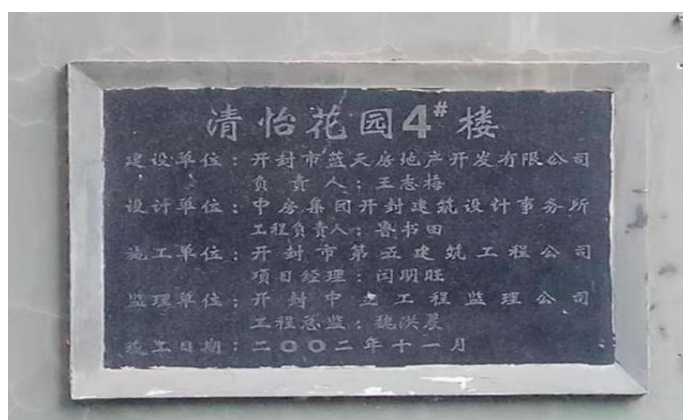 清怡花园4#楼
建设单位：开封市蓝天房地产开发有限公司
负责人：王志梅
设计单位：中房集团开封建筑设计事务所
工程负责人：鲁书田
施工单位：开封市第五建筑工程公司
项目经理：闫明旺
监理单位：开封中立工程监理公司
工程总监：魏洪晨
竣工日期：二〇〇二年十一月